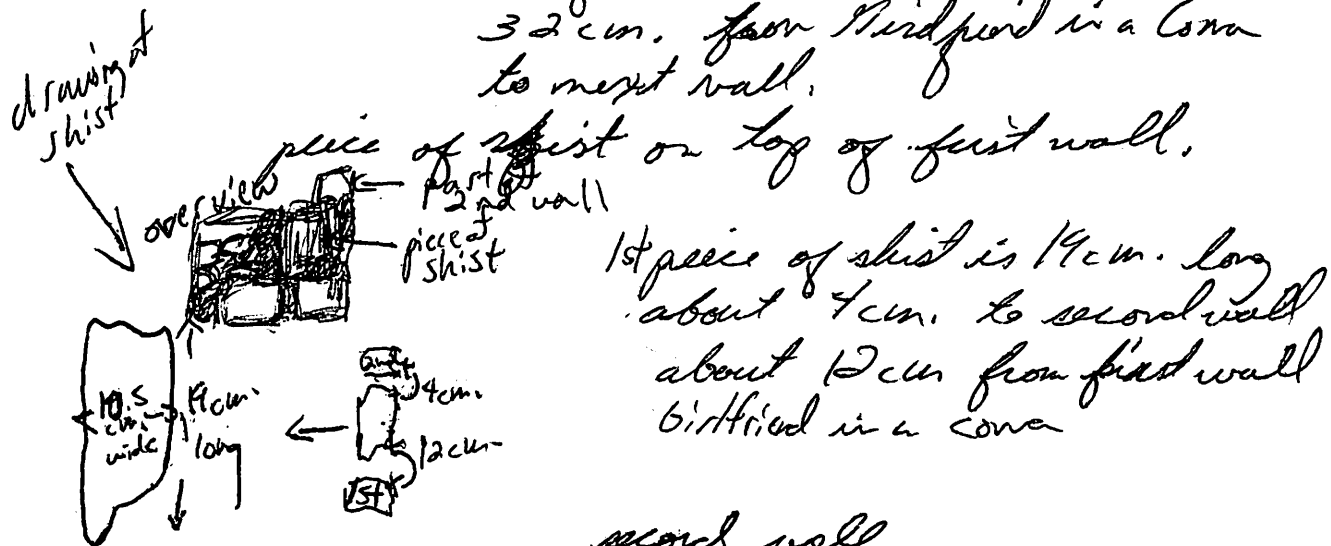 32 cm. from Girlfriend in a Coma
to next wall.
drawing of
shist
piece of shist on top of first wall.
overview
part of
2nd wall
piece of
shist
1st piece of shist is 19 cm. long
about 4 cm. to second wall
about 12 cm from first wall
Girlfriend in a coma
10.5
cm.
wide
19 cm.
long
4 cm.
12 cm
1st
second wall